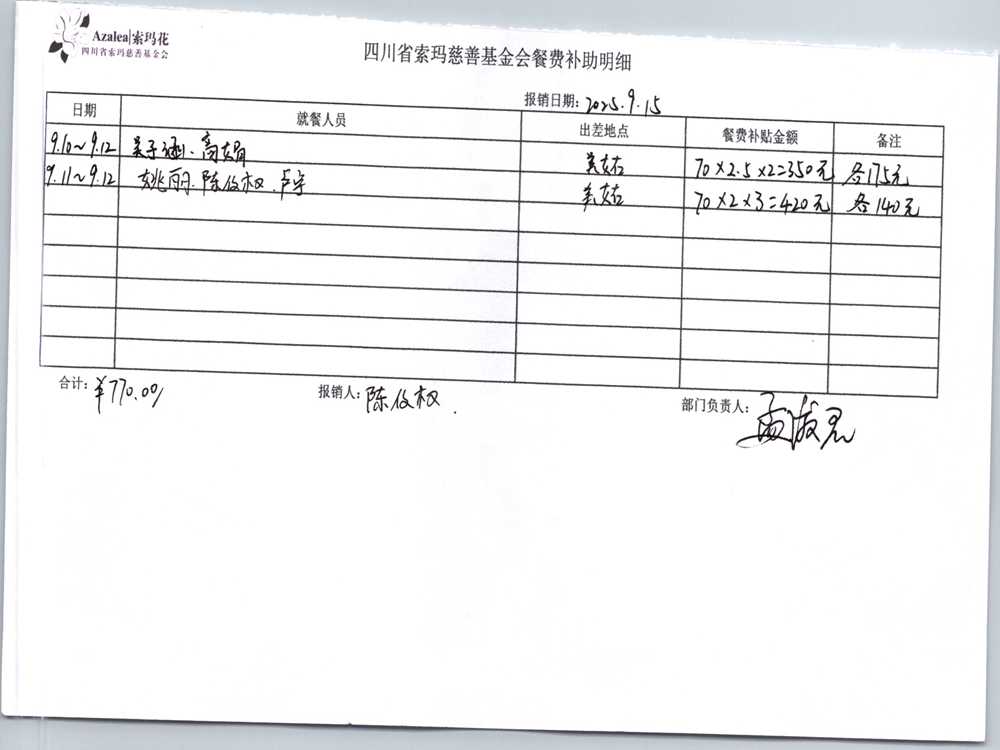 Azalea|索玛花
四川省索玛慈善基金会
四川省索玛慈善基金会餐费补助明细
报销日期：2025.9.15
日期 就餐人员 出差地点 餐费补贴金额 备注
9.10～9.12 吴子涵、高婧 美姑 70×2.5×2=350元 各175元
9.11～9.12 姚丽、陈俊权、卢宇 美姑 70×2×3=420元 各140元
合计：¥770.00/ 报销人：陈俊权 部门负责人：孟